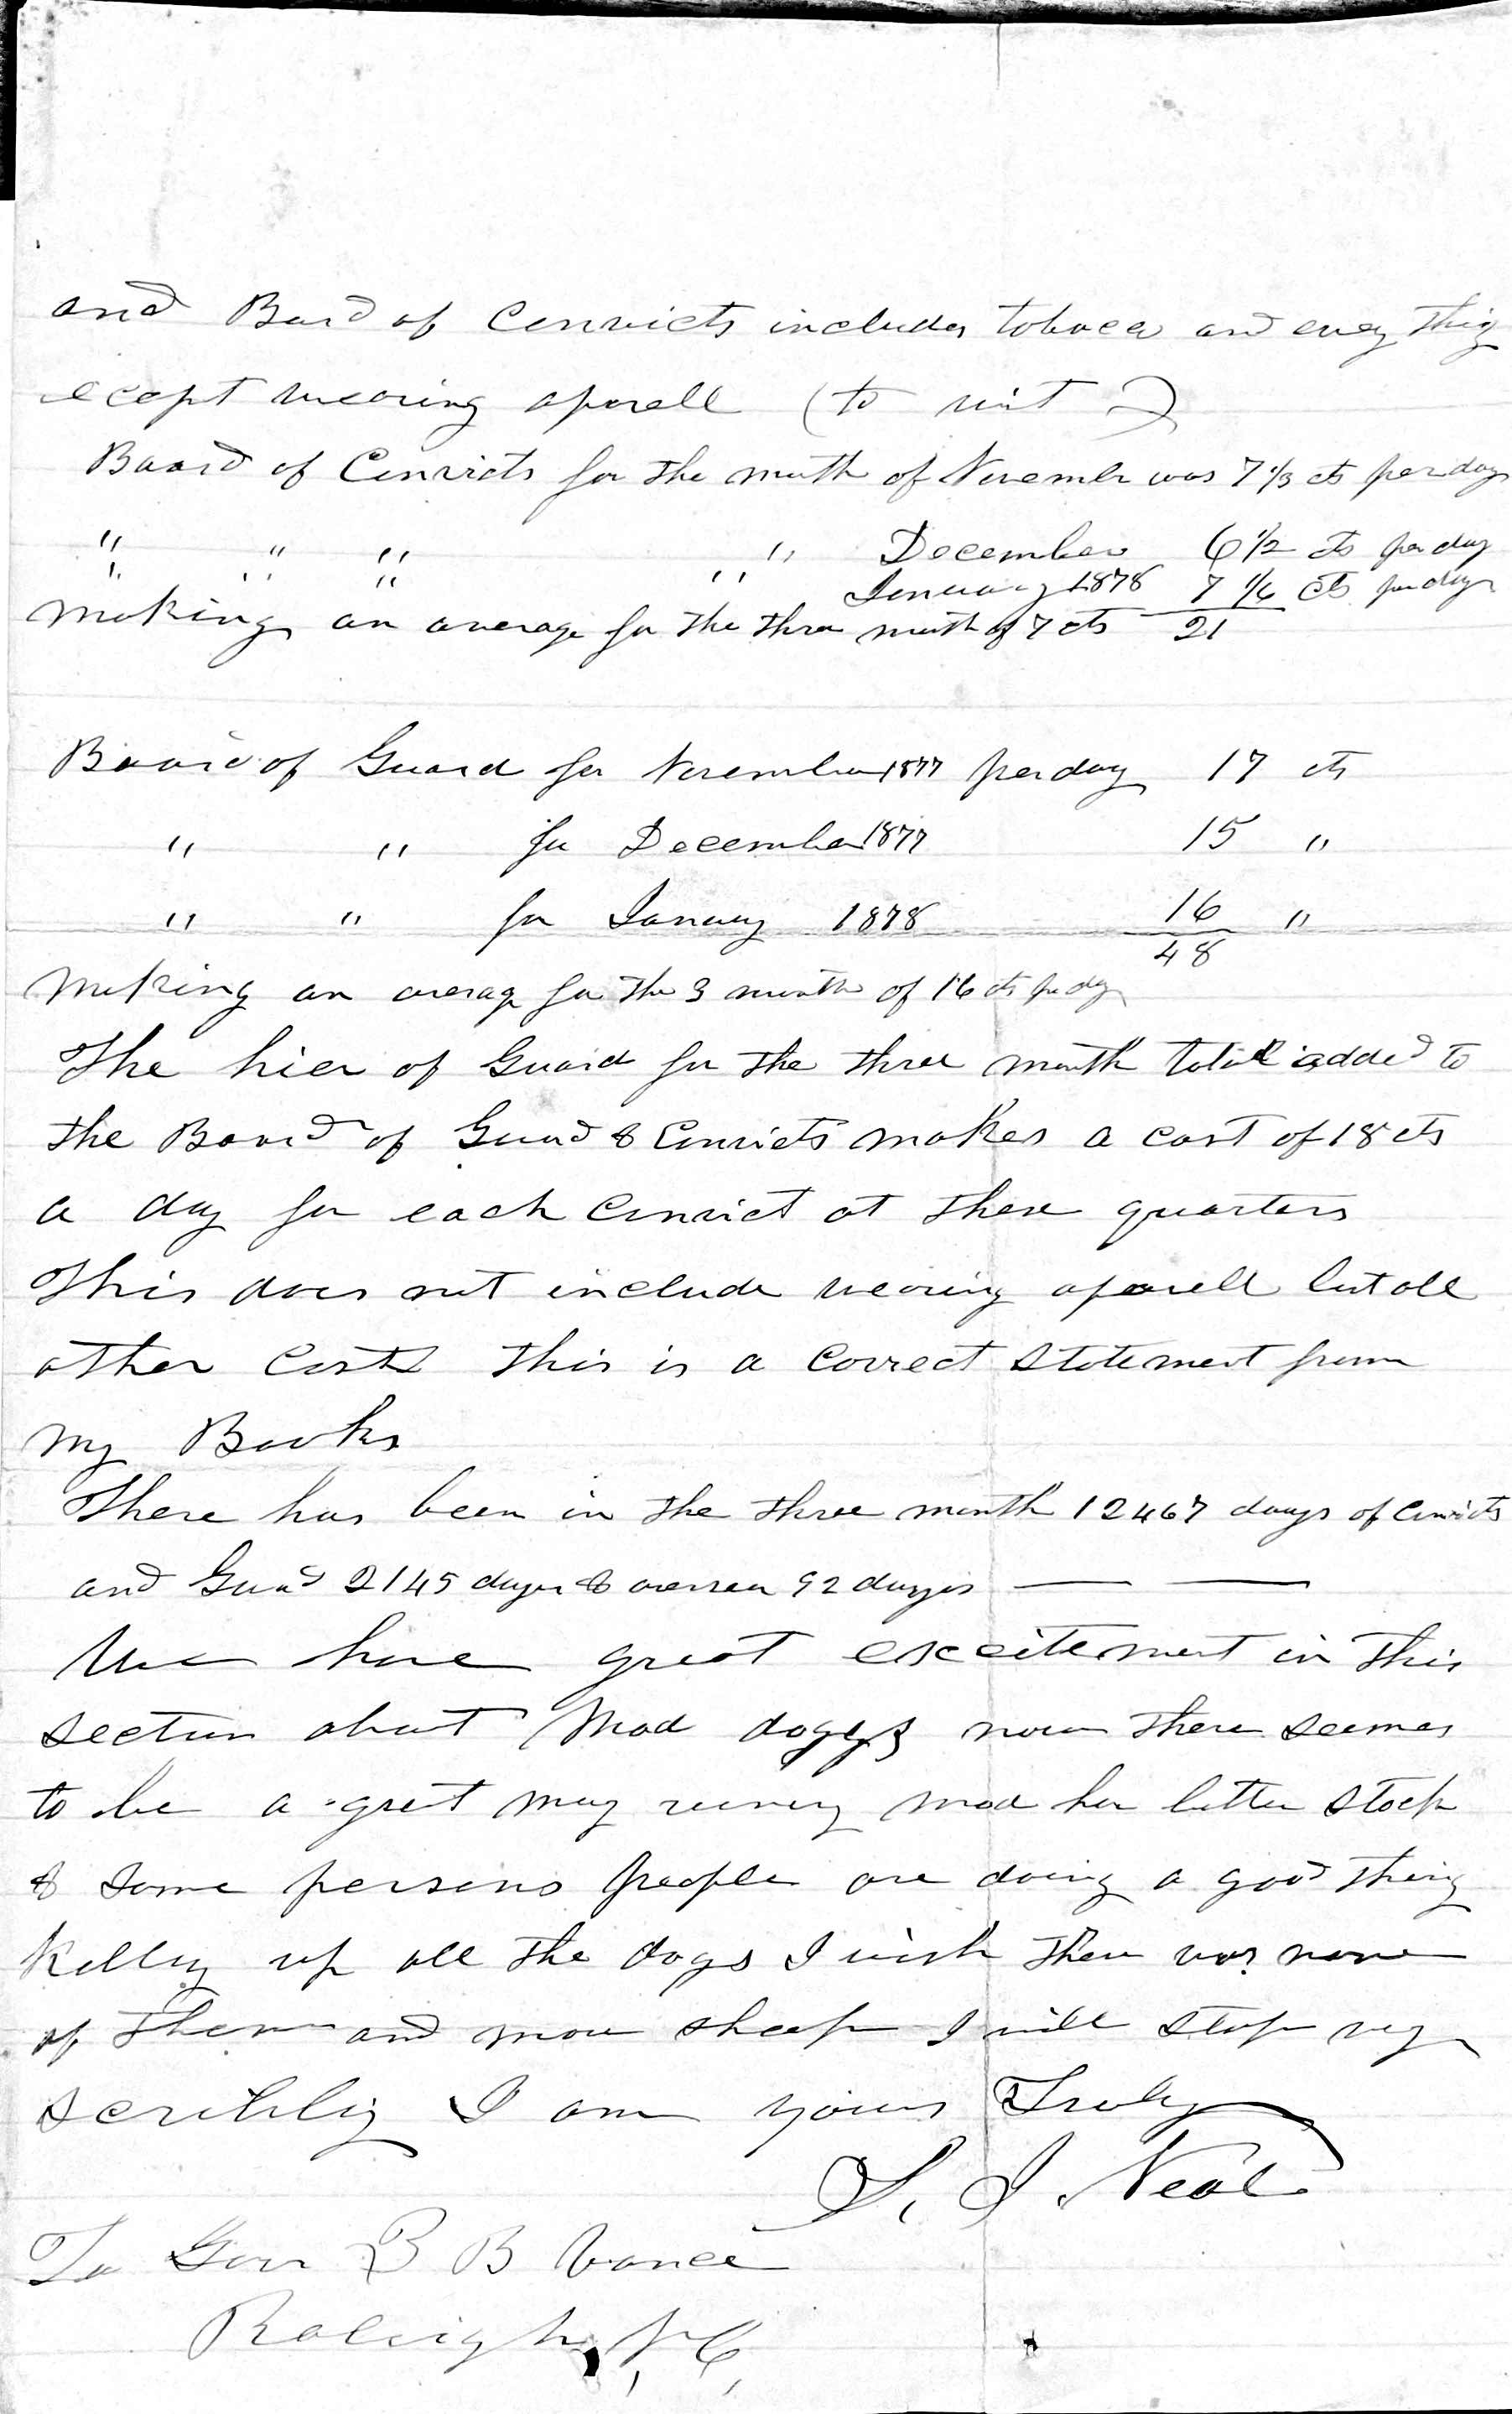 and Bord of Convicts includes tobacco and every thig
except wearing aparell (to wit)
Board of Convicts for the month of November was 7 1/3 cts per day
" " " " December 6 1/2 cts per day
" " " " January 1878 7 1/6 cts per day
Making an average for the three month of 7 cts 21
Board of Guard for November 1877 per day 17 cts
" " for December 1877 15 "
" " for January 1878 16 "
48
Making an averag for the 3 month of 16 cts per day
The hier of Guard for the three month total added to
the Board of Guard & Convicts makes a cost of 18 cts
a day for each Convict at these quarters
This does not include wearing aparell but all
other Costs this is a Correct statement from
my Books
There has been in the three month 12467 days of Convicts
and Guard 2145 days & oversea 92 days
We have great excitement in this
section about Mad doggs now there seemes
to be a gret many runing mad has bitten stock
& some persons people are doing a good thing
Killing up all the dogs I wish there was none
of them and more sheep I will stop my
scriblig I am yours Truly
S. J. Neal
To Gov Z B Vance
Raleigh, N.C.